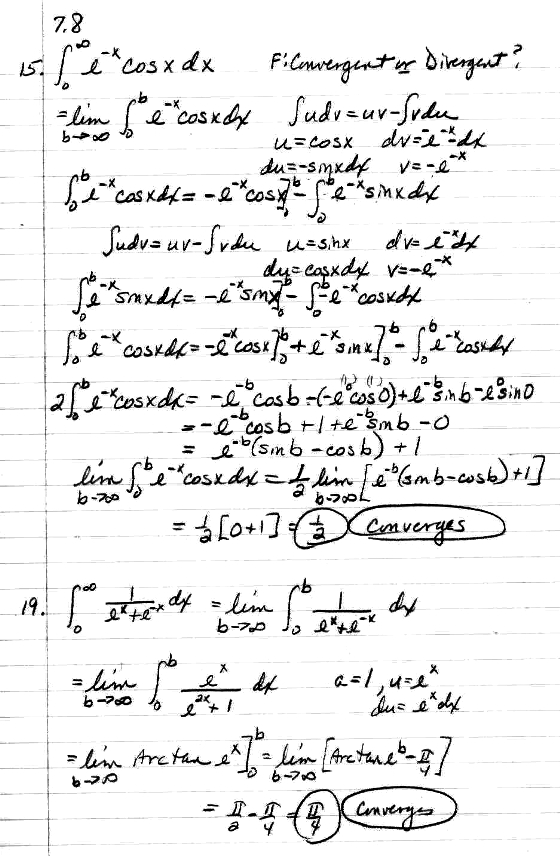 7.8
15. ∫₀^∞ e^-x cos x dx F: Convergent or Divergent?
= lim b→∞ ∫₀^b e^-x cos x dx ∫udv = uv - ∫vdu
u = cos x dv = e^-x dx
du = -sin x dx v = -e^-x
∫₀^b e^-x cos x dx = -e^-x cos x]₀^b - ∫₀^b e^-x sin x dx
∫udv = uv - ∫vdu u = sin x dv = e^-x dx
du = cos x dx v = -e^-x
∫₀^b e^-x sin x dx = -e^-x sin x]₀^b - ∫₀^b -e^-x cos x dx
∫₀^b e^-x cos x dx = -e^-x cos x]₀^b + e^-x sin x]₀^b - ∫₀^b e^-x cos x dx
(1) (1)
2∫₀^b e^-x cos x dx = -e^-b cos b - (-e^0 cos 0) + e^-b sin b - e^0 sin 0
= -e^-b cos b + 1 + e^-b sin b - 0
= e^-b (sin b - cos b) + 1
lim b→∞ ∫₀^b e^-x cos x dx = 1/2 lim b→∞ [e^-b (sin b - cos b) + 1]
= 1/2 [0+1] = 1/2 Converges
19. ∫₀^∞ 1/(e^x + e^-x) dx = lim b→∞ ∫₀^b 1/(e^x + e^-x) dx
= lim b→∞ ∫₀^b e^x/(e^2x + 1) dx a = 1, u = e^x
du = e^x dx
= lim b→∞ Arctan e^x]₀^b = lim b→∞ [Arctan e^b - π/4]
= π/2 - π/4 = π/4 Converges